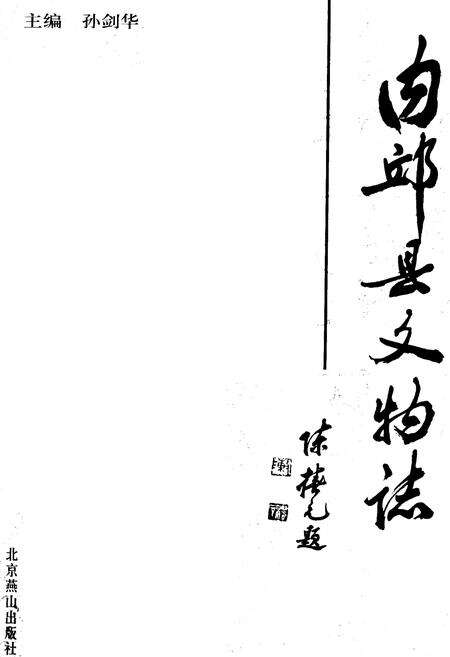 主编 孙剑华
内邱县文物誌
陈椿元题
北京燕山出版社